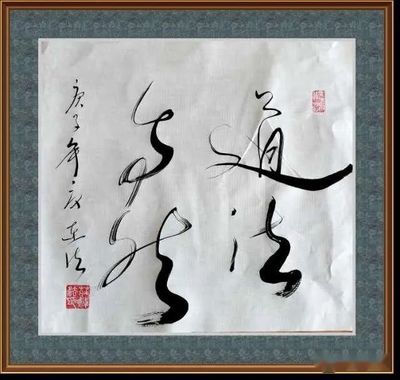 道法
自然
庚子年